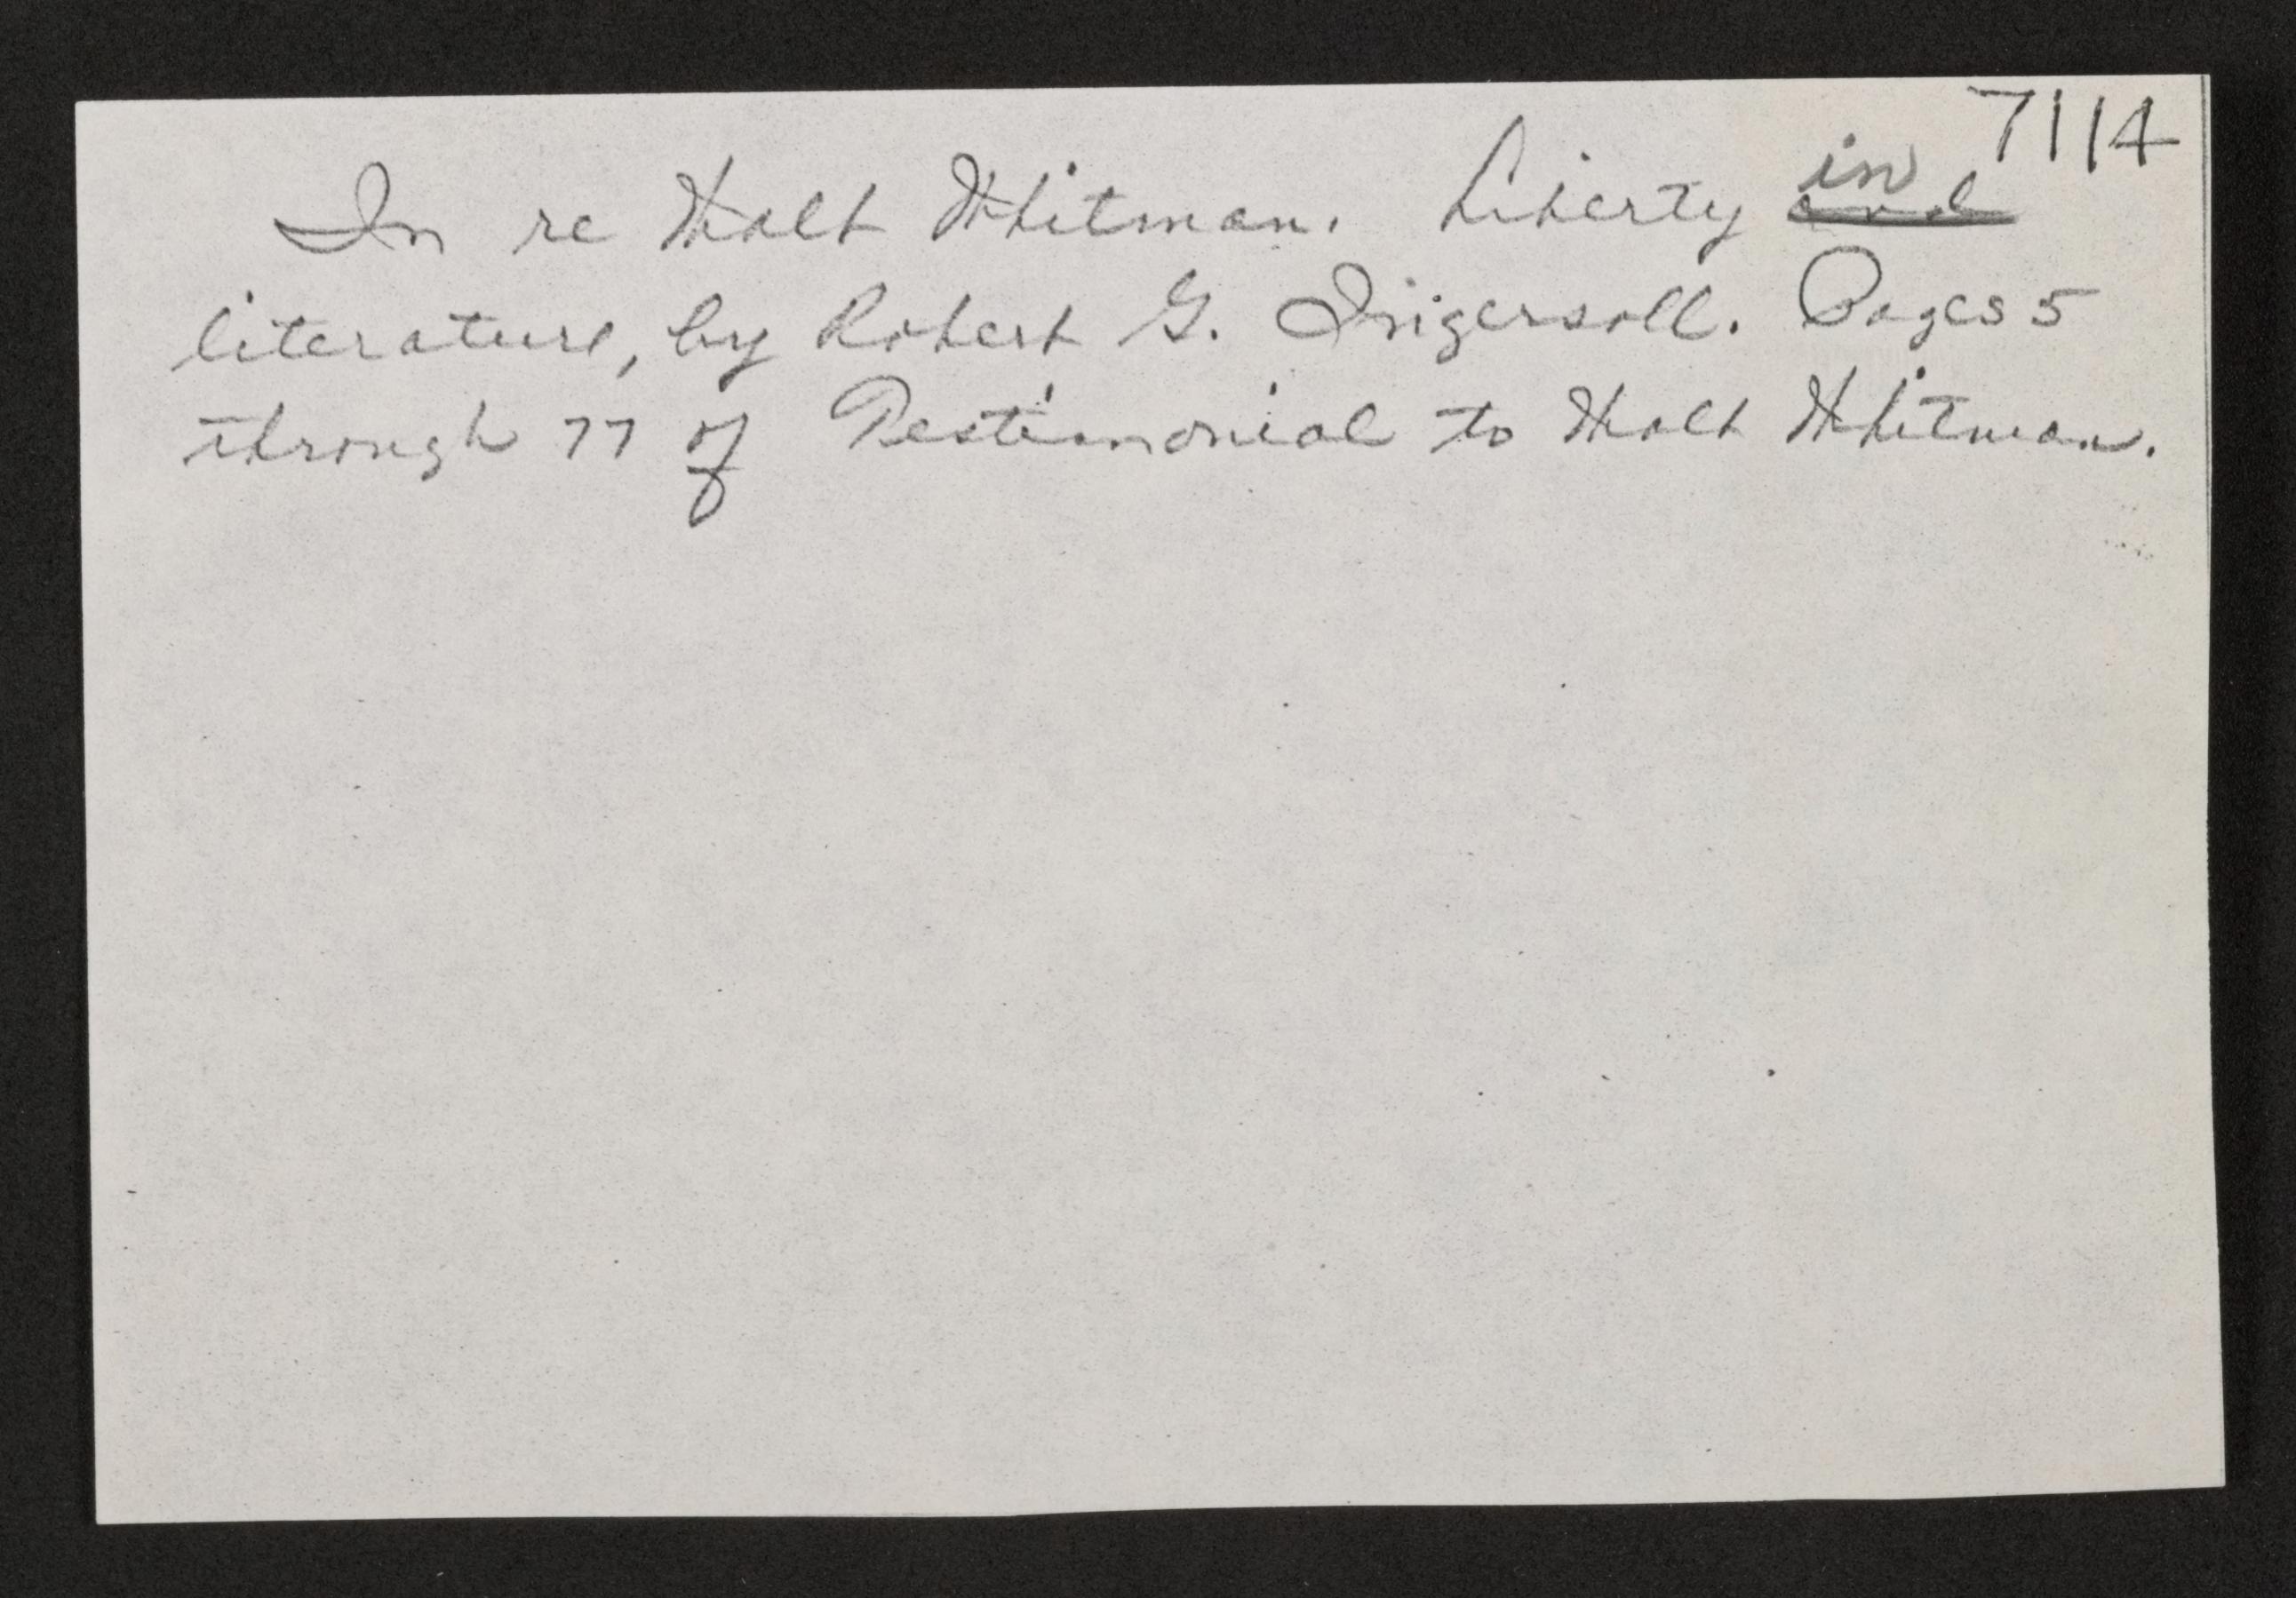 7114
In re Walt Whitman. Liberty in ~~and~~
literature, by Robert G. Ingersoll. Pages 5
through 77 of Testimonial to Walt Whitman.